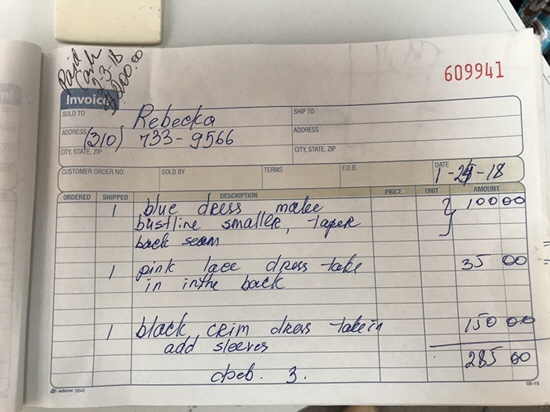 Paid
Cash
2-3-18
609941
Invoice
SOLD TO Rebecka SHIP TO
ADDRESS (210) 733-9566 ADDRESS
CITY, STATE, ZIP CITY, STATE, ZIP
CUSTOMER ORDER NO. SOLD BY TERMS F.O.B. DATE 1-29-18
ORDERED SHIPPED DESCRIPTION PRICE UNIT AMOUNT
1 blue dress make 100 00
bustline smaller, taper
back seam
1 pink lace dress take 35 00
in in the back
1 black crim dress take in 150 00
add sleeves
285 00
3.
adams 5841